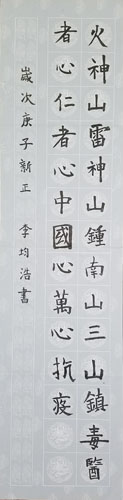 火神山雷神山鍾南山三山鎮毒醫
者心仁者心中國心萬心抗疫
歲次庚子新正 李均浩書